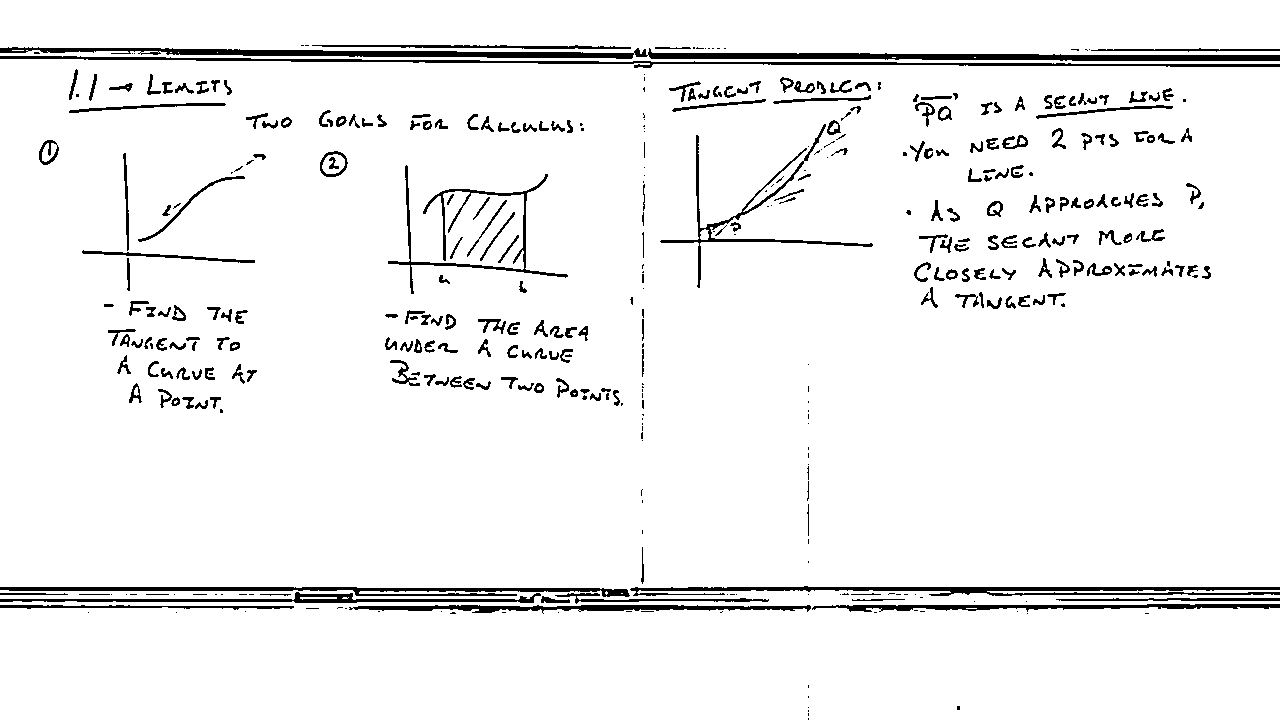 1.1 → LIMITS
TWO GOALS FOR CALCULUS:
①
②
a b
- FIND THE
TANGENT TO
A CURVE AT
A POINT.
- FIND THE AREA
UNDER A CURVE
BETWEEN TWO POINTS.
TANGENT PROBLEM:
Q
P
"PQ" IS A SECANT LINE.
• YOU NEED 2 PTS FOR A
LINE.
• AS Q APPROACHES P,
THE SECANT MORE
CLOSELY APPROXIMATES
A TANGENT.